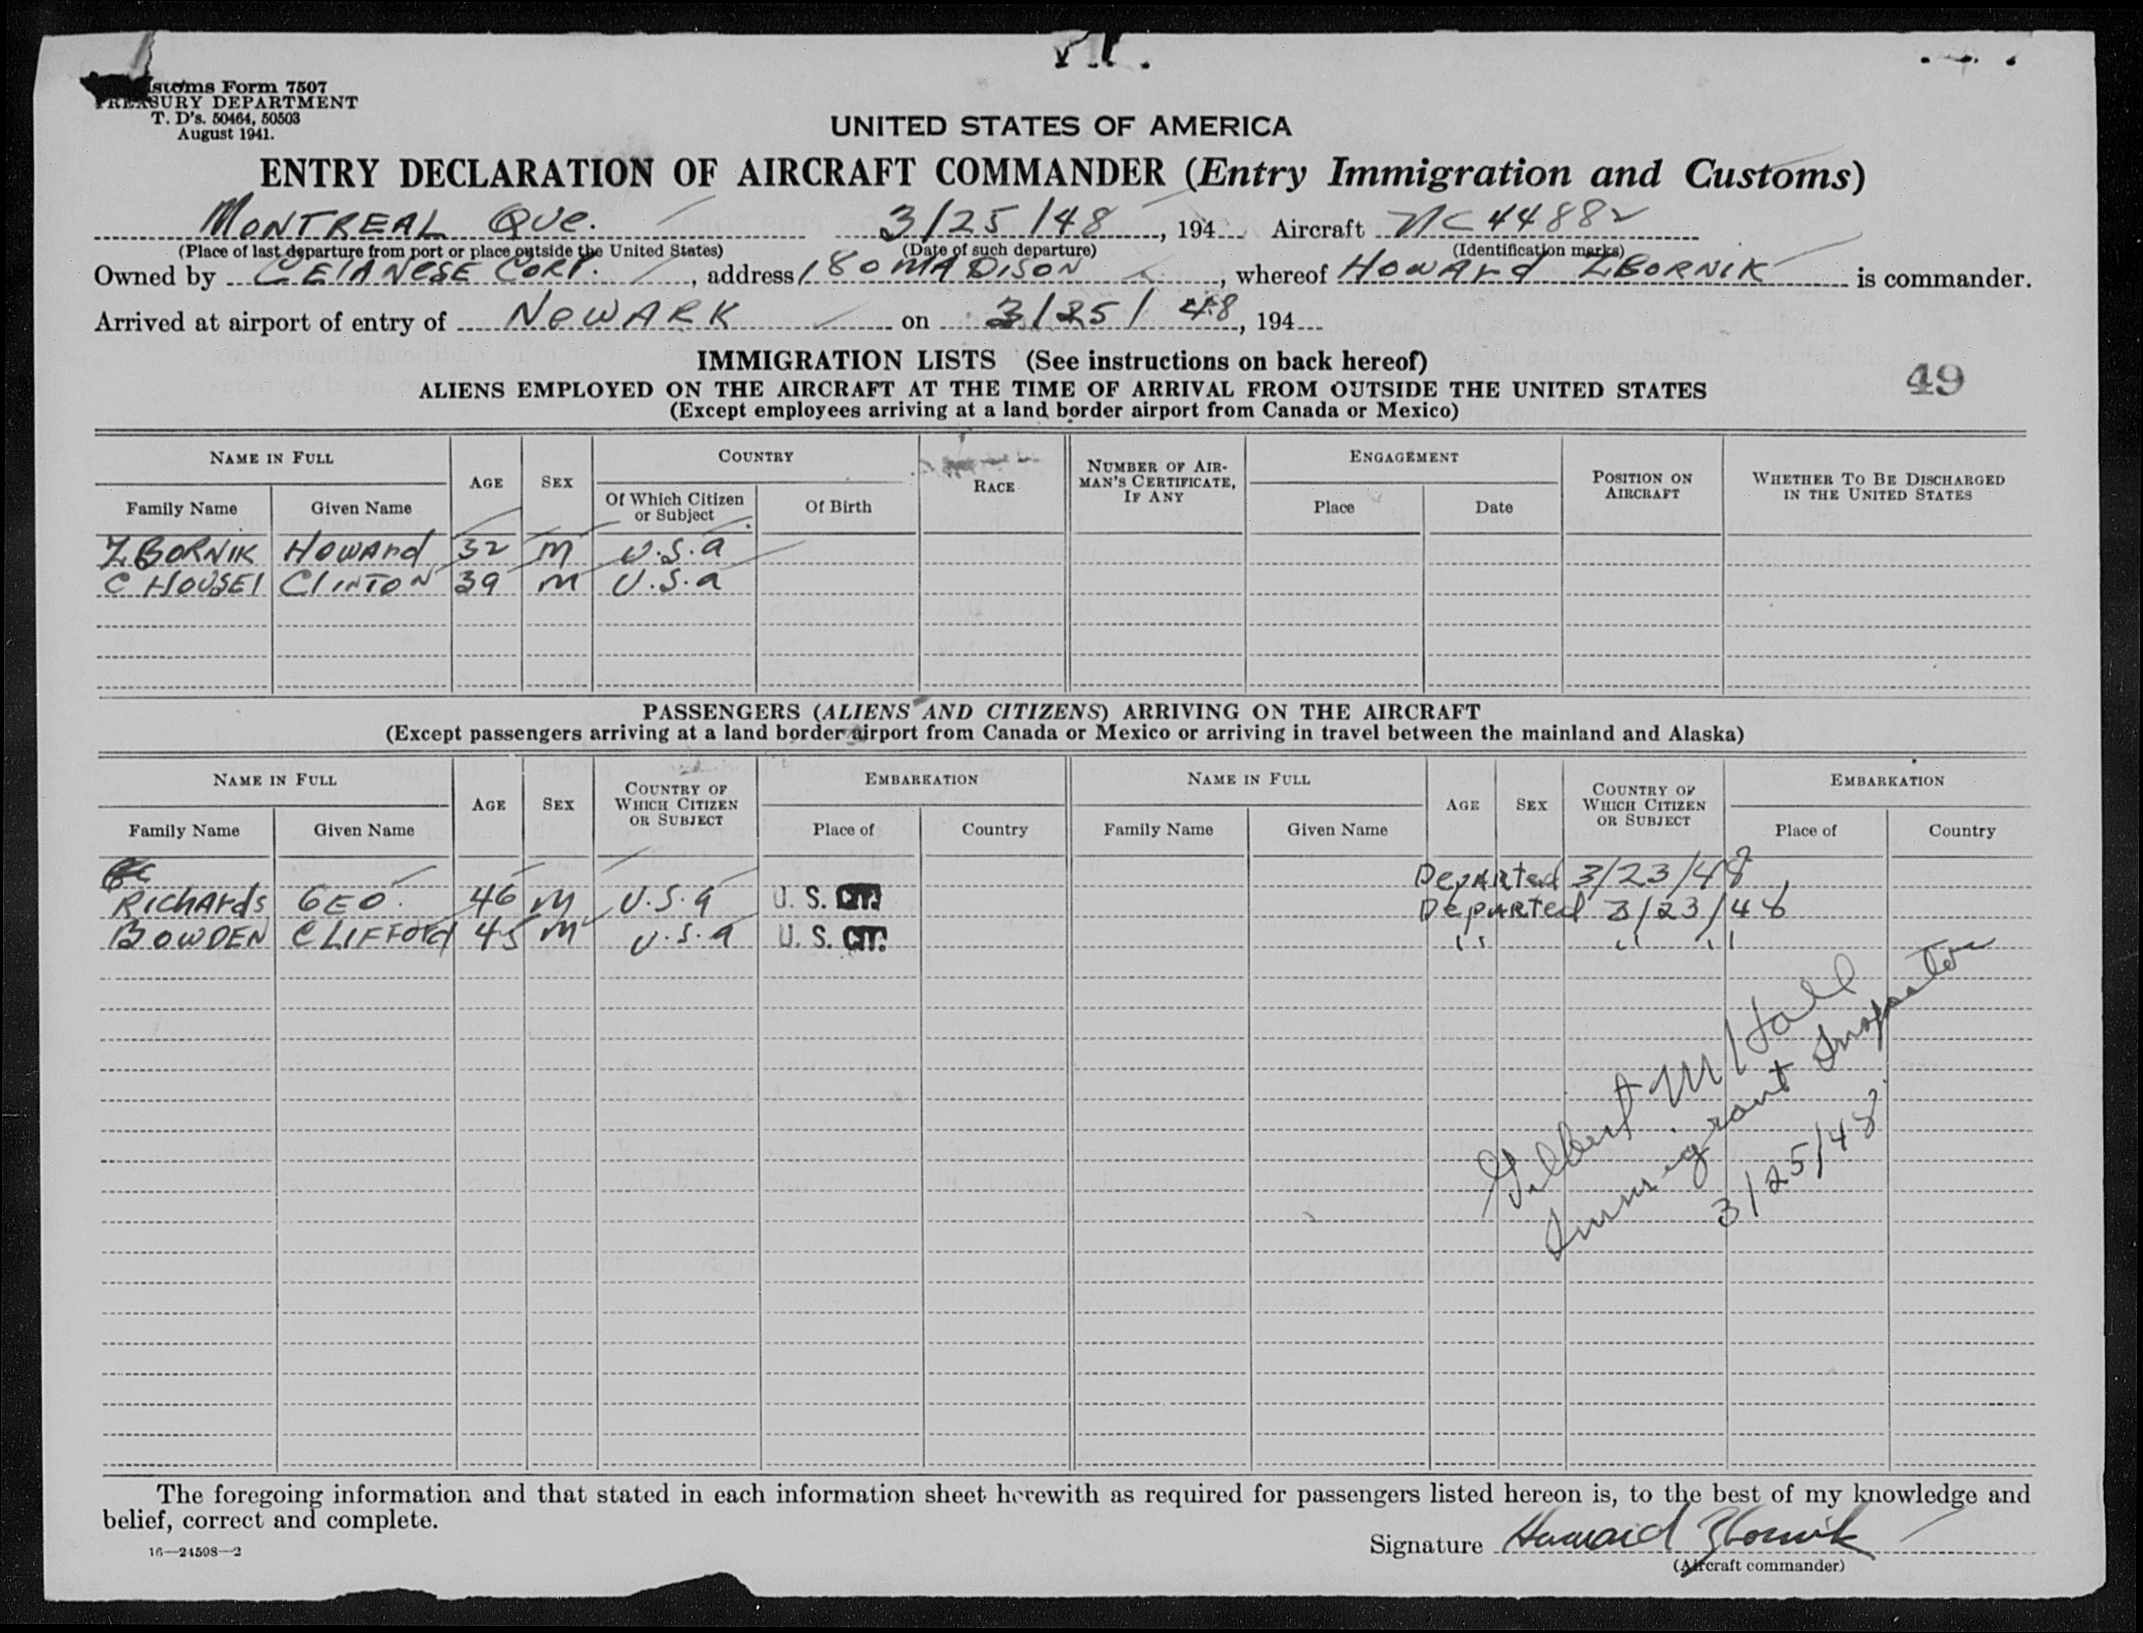 Customs Form 7507
TREASURY DEPARTMENT
T. D's. 50464, 50503
August 1941.
UNITED STATES OF AMERICA
ENTRY DECLARATION OF AIRCRAFT COMMANDER (Entry Immigration and Customs)
MONTREAL QUE. 3/25/48, 194 Aircraft NC 44882
(Place of last departure from port or place outside the United States) (Date of such departure) (Identification marks)
Owned by CELANESE CORP., address 180 MADISON, whereof HOWARD ZBORNIK is commander.
Arrived at airport of entry of NEWARK on 3/25/48, 194
IMMIGRATION LISTS (See instructions on back hereof)
49
ALIENS EMPLOYED ON THE AIRCRAFT AT THE TIME OF ARRIVAL FROM OUTSIDE THE UNITED STATES
(Except employees arriving at a land border airport from Canada or Mexico)
NAME IN FULL AGE SEX COUNTRY RACE NUMBER OF AIRMAN'S CERTIFICATE, IF ANY ENGAGEMENT POSITION ON AIRCRAFT WHETHER TO BE DISCHARGED IN THE UNITED STATES
Family Name Given Name Of Which Citizen or Subject Of Birth Place Date
ZBORNIK HOWARD 32 M U.S.A
C HOUSEL CLINTON 39 M U.S.A
PASSENGERS (ALIENS AND CITIZENS) ARRIVING ON THE AIRCRAFT
(Except passengers arriving at a land border airport from Canada or Mexico or arriving in travel between the mainland and Alaska)
NAME IN FULL AGE SEX COUNTRY OF WHICH CITIZEN OR SUBJECT EMBARKATION NAME IN FULL AGE SEX COUNTRY OF WHICH CITIZEN OR SUBJECT EMBARKATION
Family Name Given Name Place of Country Family Name Given Name Place of Country
Departed 3/23/48
RICHARDS GEO. 46 M U.S.A U. S. CIT. Departed 3/23/48
BOWDEN CLIFFORD 45 M U.S.A U. S. CIT. " " "
Gilbert M Hall
Immigrant Inspector
3/25/48
The foregoing information and that stated in each information sheet herewith as required for passengers listed hereon is, to the best of my knowledge and
belief, correct and complete.
Signature Howard Zbornik
16—24598—2
(Aircraft commander)